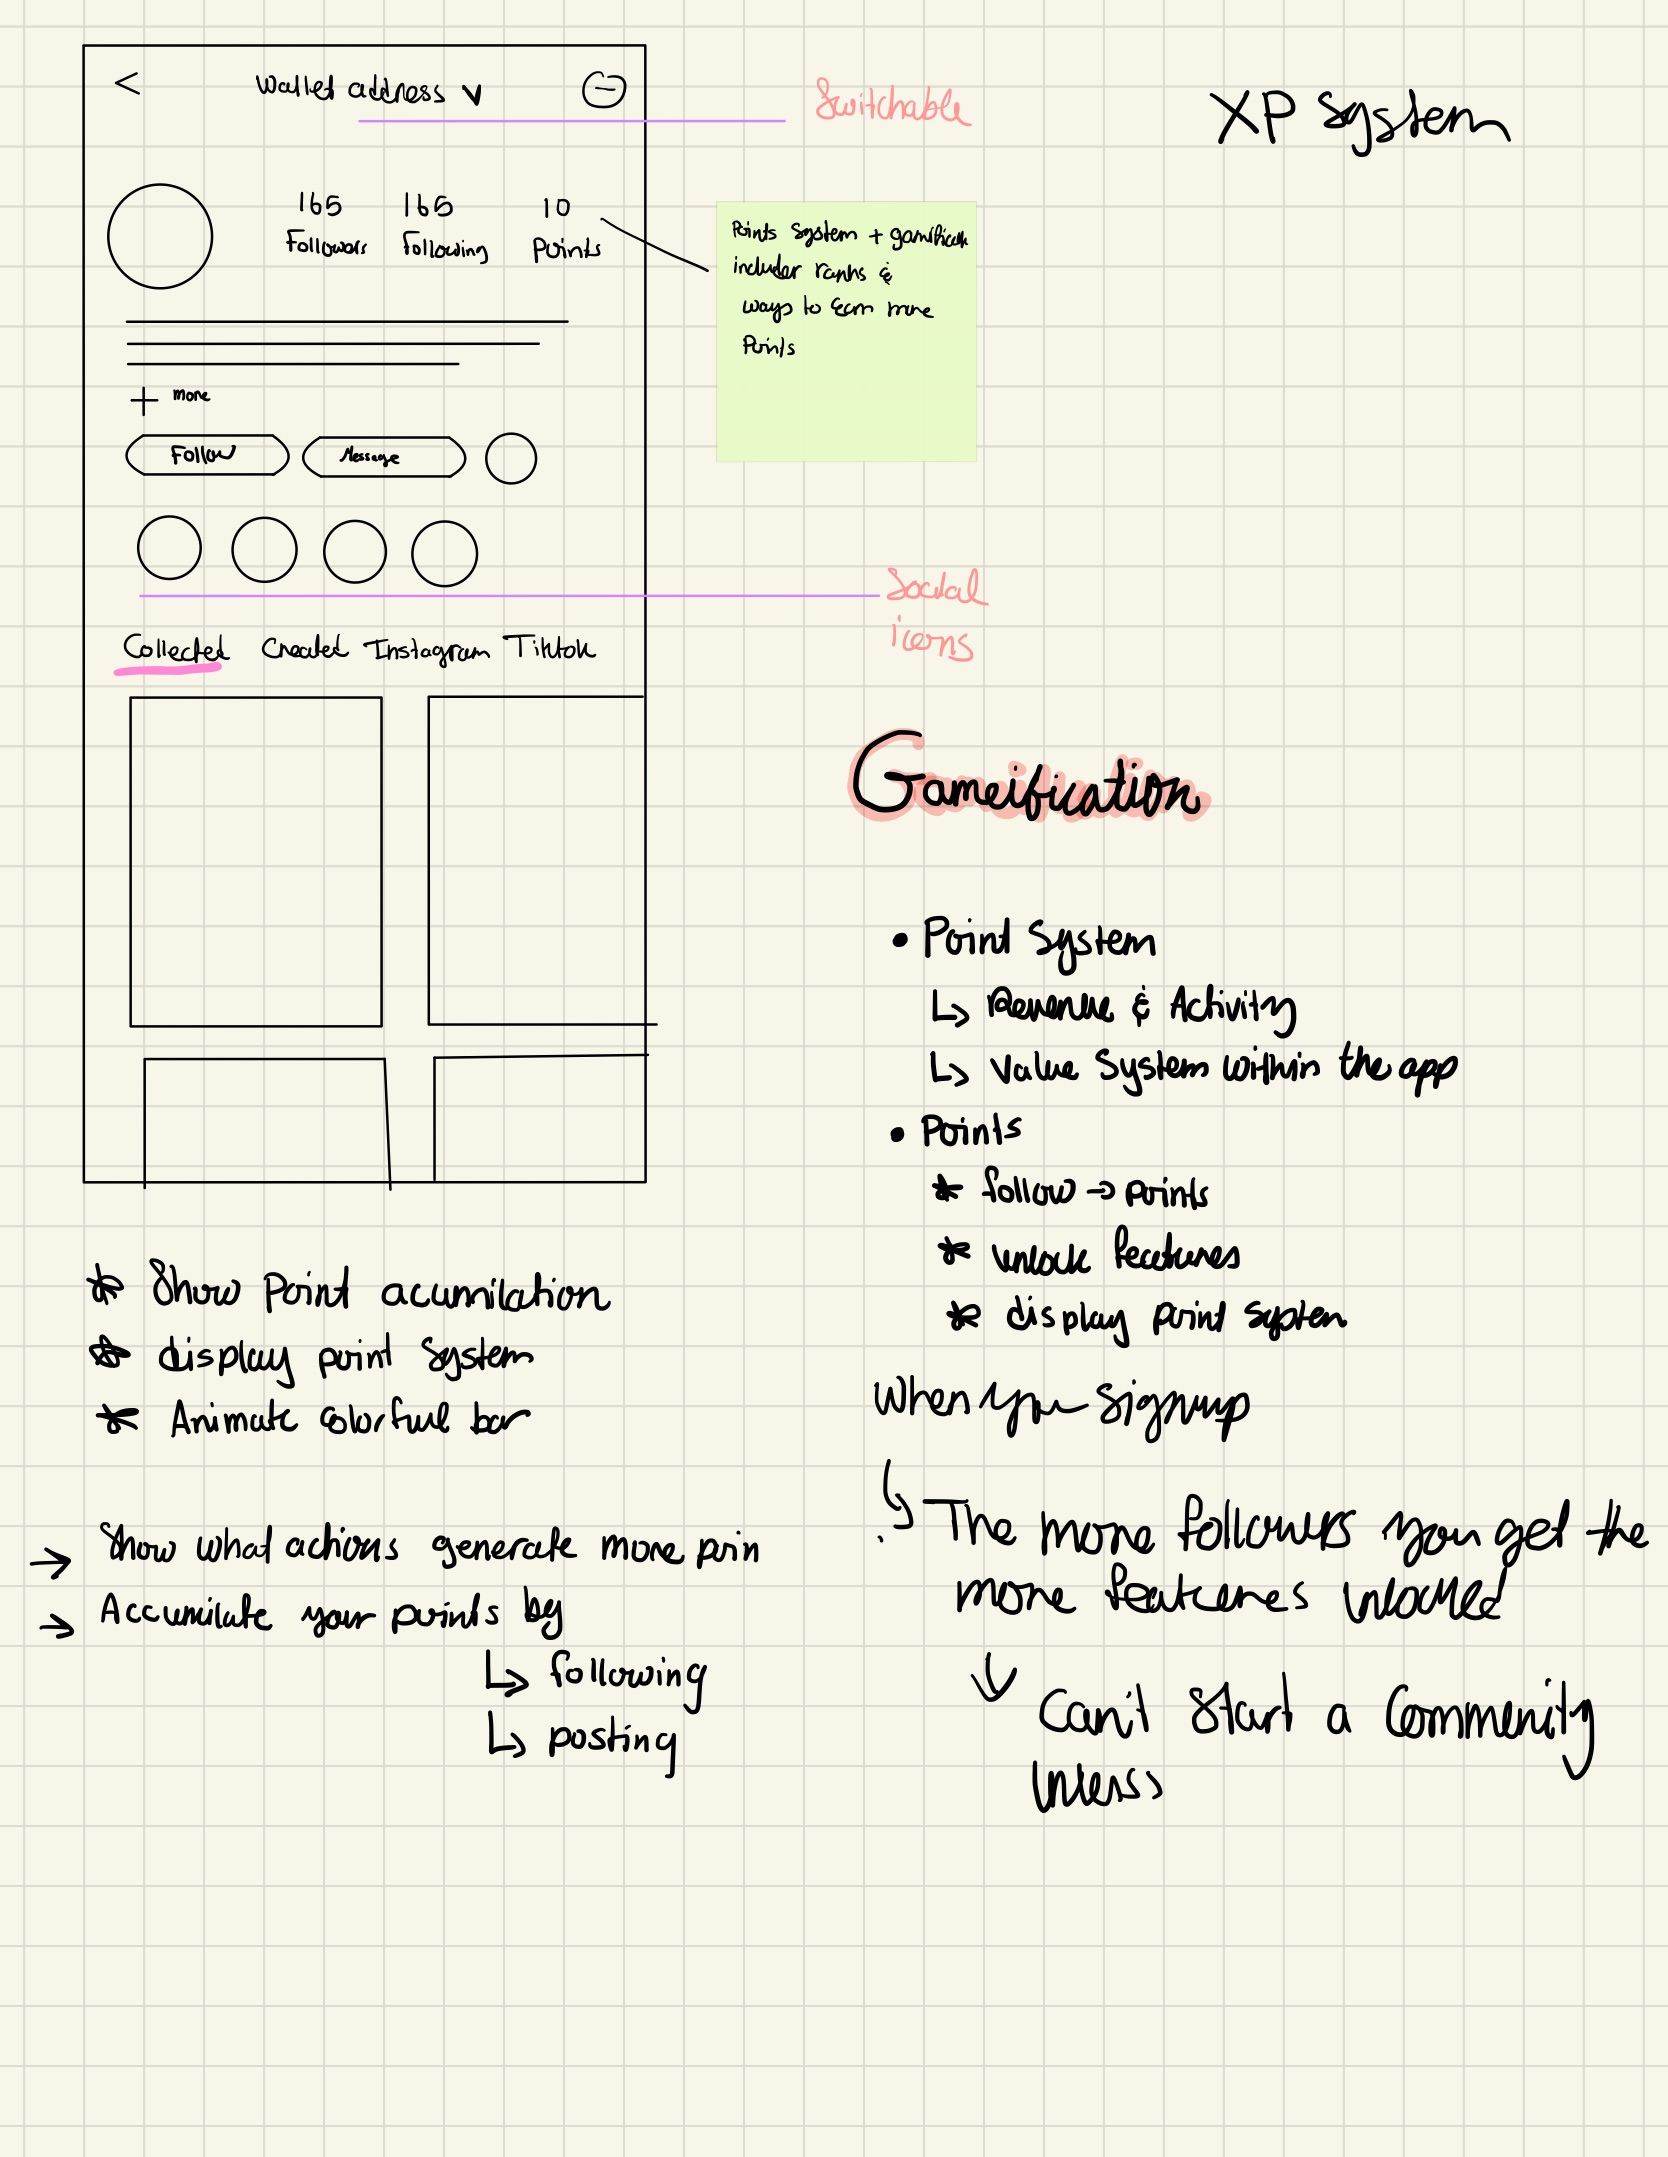 < Wallet address
Switchable
XP System
165 165 10
Followers Following Points
Points System + gamificati
includes ranks &
ways to earn more
Points
+ more
Follow Message
Social
icons
Collected Created Instagram Tiktok
Gameification
• Point System
↳ Revenue & Activity
↳ Value System within the app
• Points
* follow → points
* unlock features
* display point system
When you signup
↳ The more followers you get the
more features unlocked
↓ Can't Start a Commenity
Unless
* Show Point acumilation
* display point System
* Animate colorfuul bar
→ Show what actions generate more poin
→ Accumilate your points by
↳ following
↳ posting